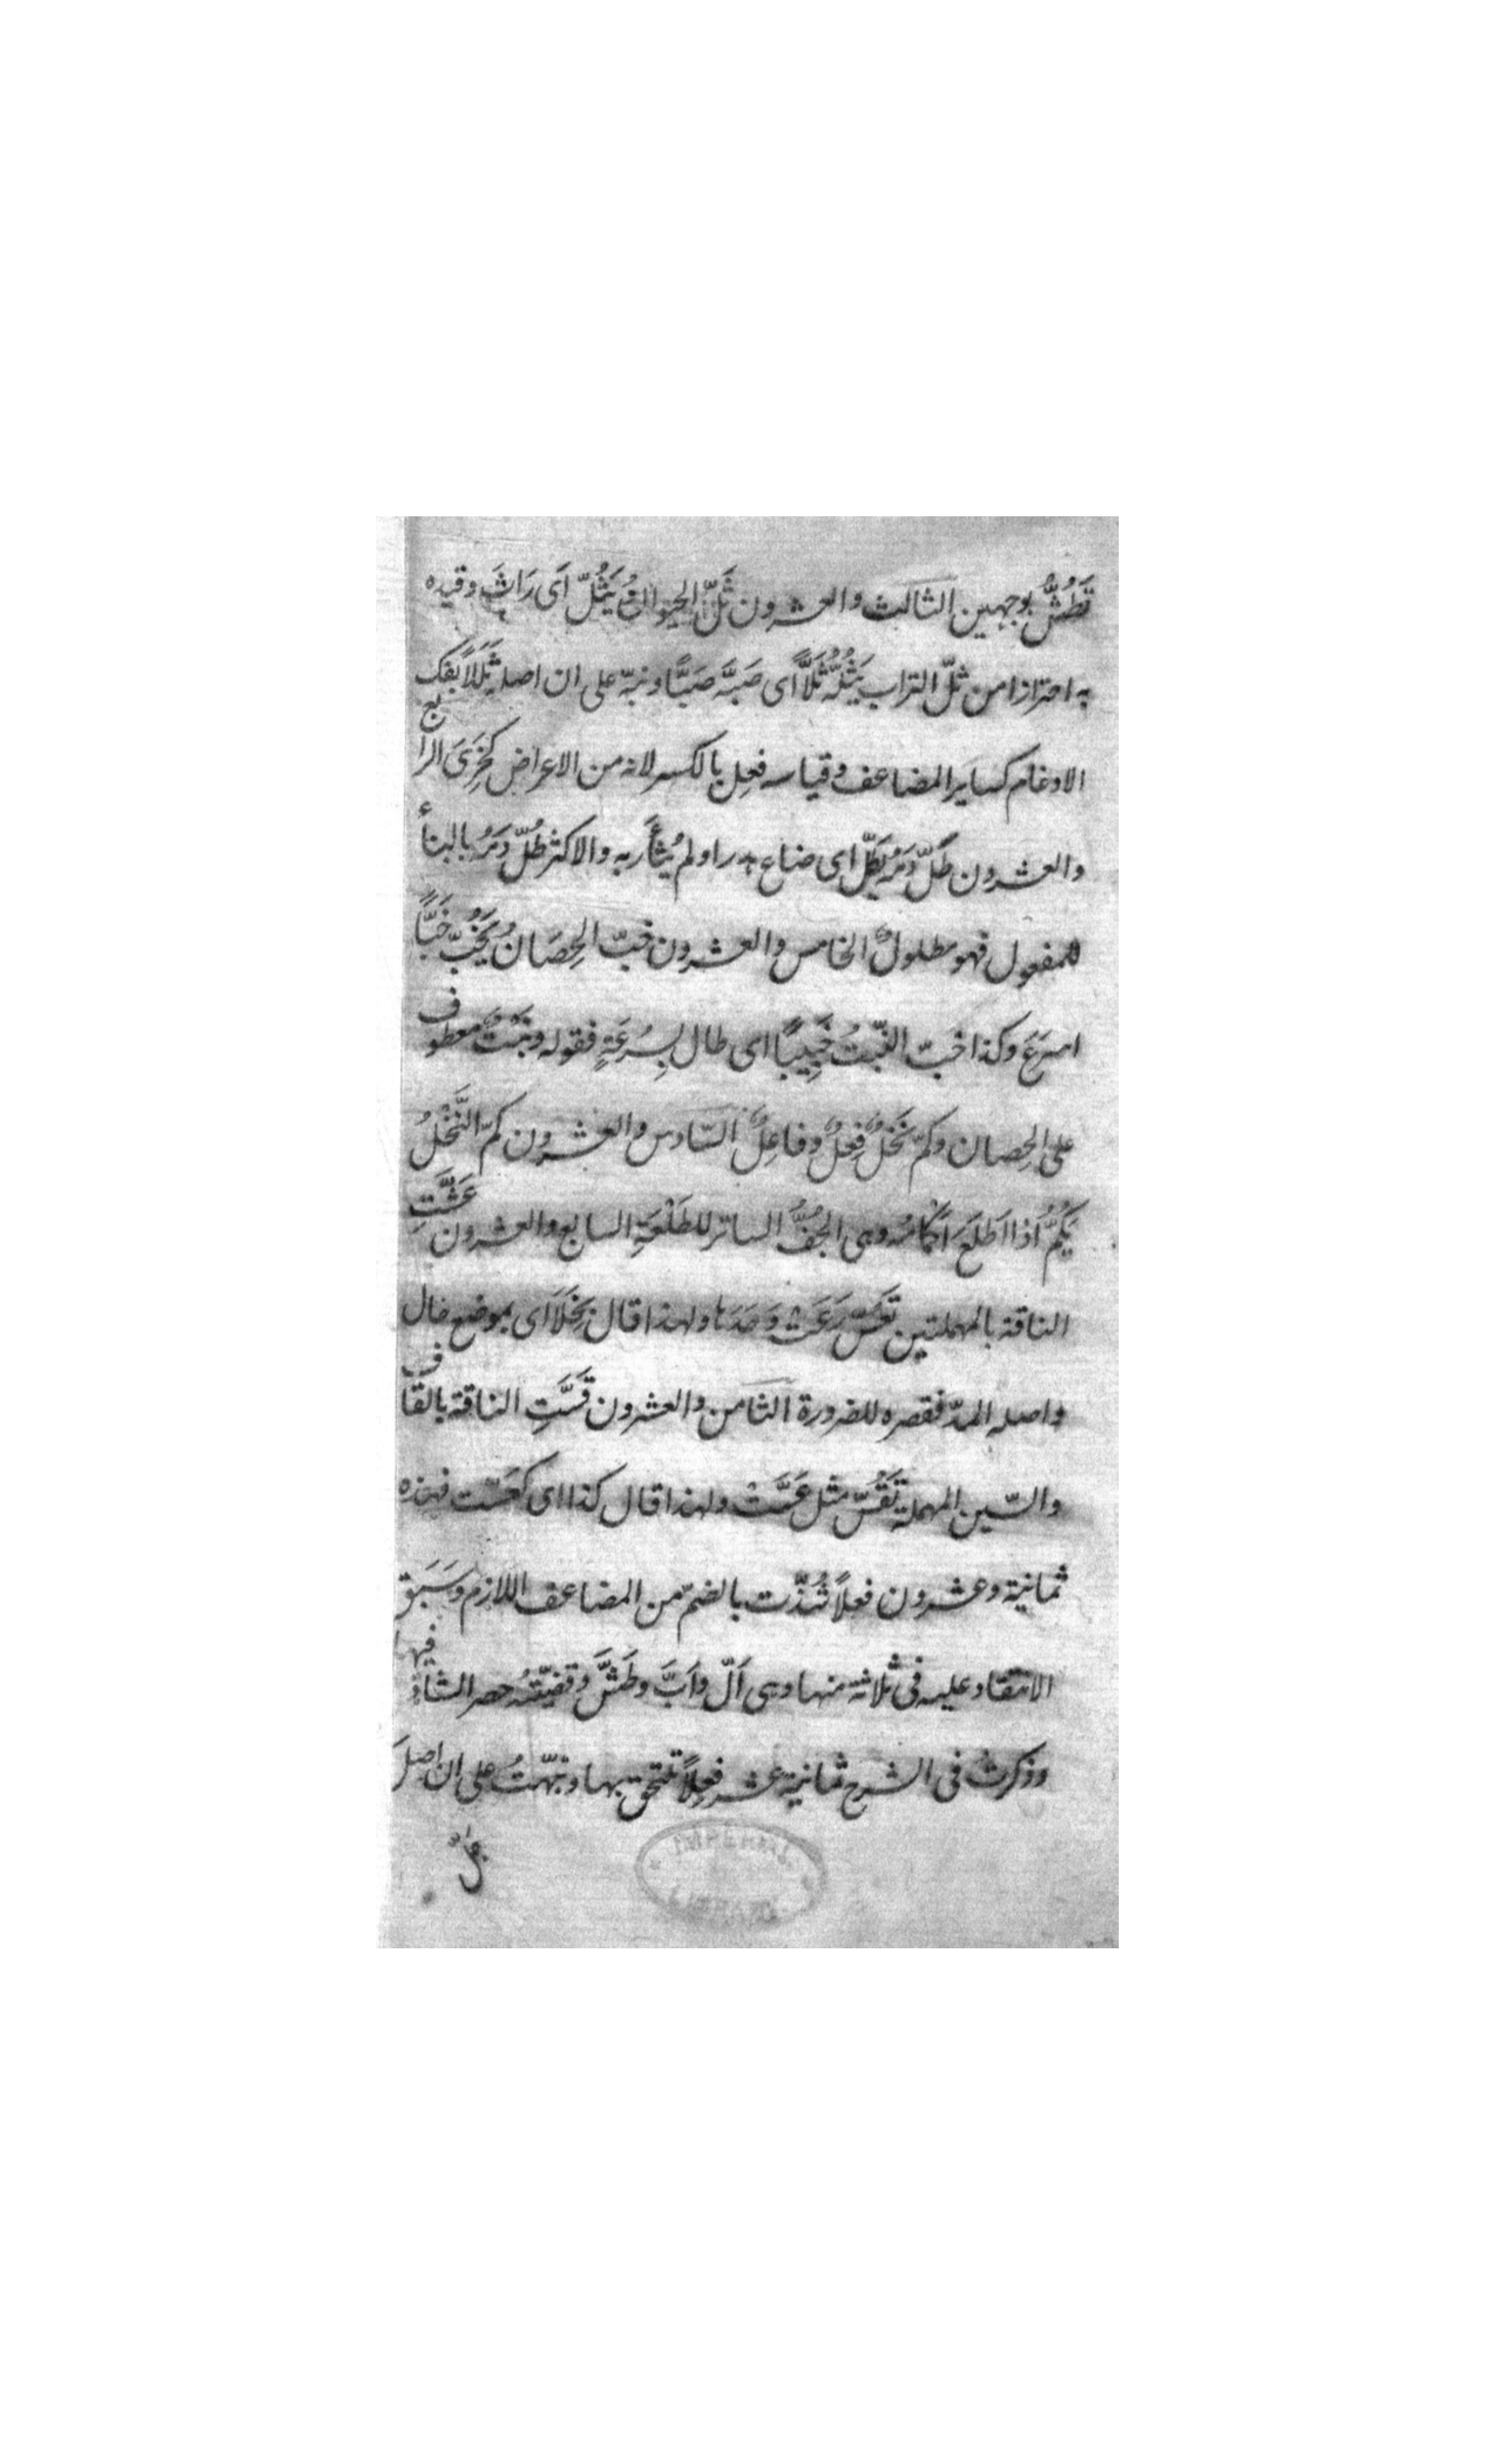 تَطُشُّ بوجهين الثالث والعشرون ثَلَّ الحيوانُ يَثُلُّ اَى رَاثَ وقيده
به احترازا من ثلّ التراب يَثُلُّهُ ثَلًّا اى صَبَّه صَبًّا ونبّه على ان اصله ثَلَلًا بفك
الادغام كساير المضاعف وقياسه فعِل بالكسر لانه من الاعراض كخَرِىَ الرابع
والعشرون طَلَّ دَمُهُ يَطُلّ اى ضاع هدرا ولم يُثأَر به والاكثر طُلَّ دَمُهُ بالبناء
للمفعول فهو مطلولٌ الخامس والعشرون خبّ الحِصَانُ يَخُبّ خَبًّا
اسرَعَ وكذا خبّ النَّبتُ خَبِيبًا اى طال بِسُرعَةٍ فقوله ونَبْتٌ معطوف
على الحِصان وكمّ نَخلٌ فِعلٌ وفاعِلٌ السّادس والعشرون كمّ النَّخْلُ
يَكُمُّ اذا اَطلَعَ اَكْمَامَهُ وهى الجُفُّ الساتر للطَلْعَةِ السابع والعشرون عَسَّت
الناقة بالمهملتين تَعُسّ رَعَتْ وَحدَهَا ولهذا قال بِخَلًا اى بموضع خال
واصله المدّ فقصره للضرورة الثامن والعشرون قَسَّتِ الناقة بالقاف
والسّين المهملة تَقُسّ مثل عَسَّتْ ولهذا قال كذا اى كعَسّت فهذه
ثمانية وعشرون فعلاً شذّت بالضمّ من المضاعف اللازم وسَبَق
الانتقاد عليه فى ثلاثة منها وهى اَلّ واَبَّ وطَشَّ وقضيّتُهُ حصر الشاذّ فيها
وذكرتُ فى الشرح ثمانية عشر فعلاً تلتحق بها ونبّهتُ على ان اصلَ
IMPERIAL LIBRARY